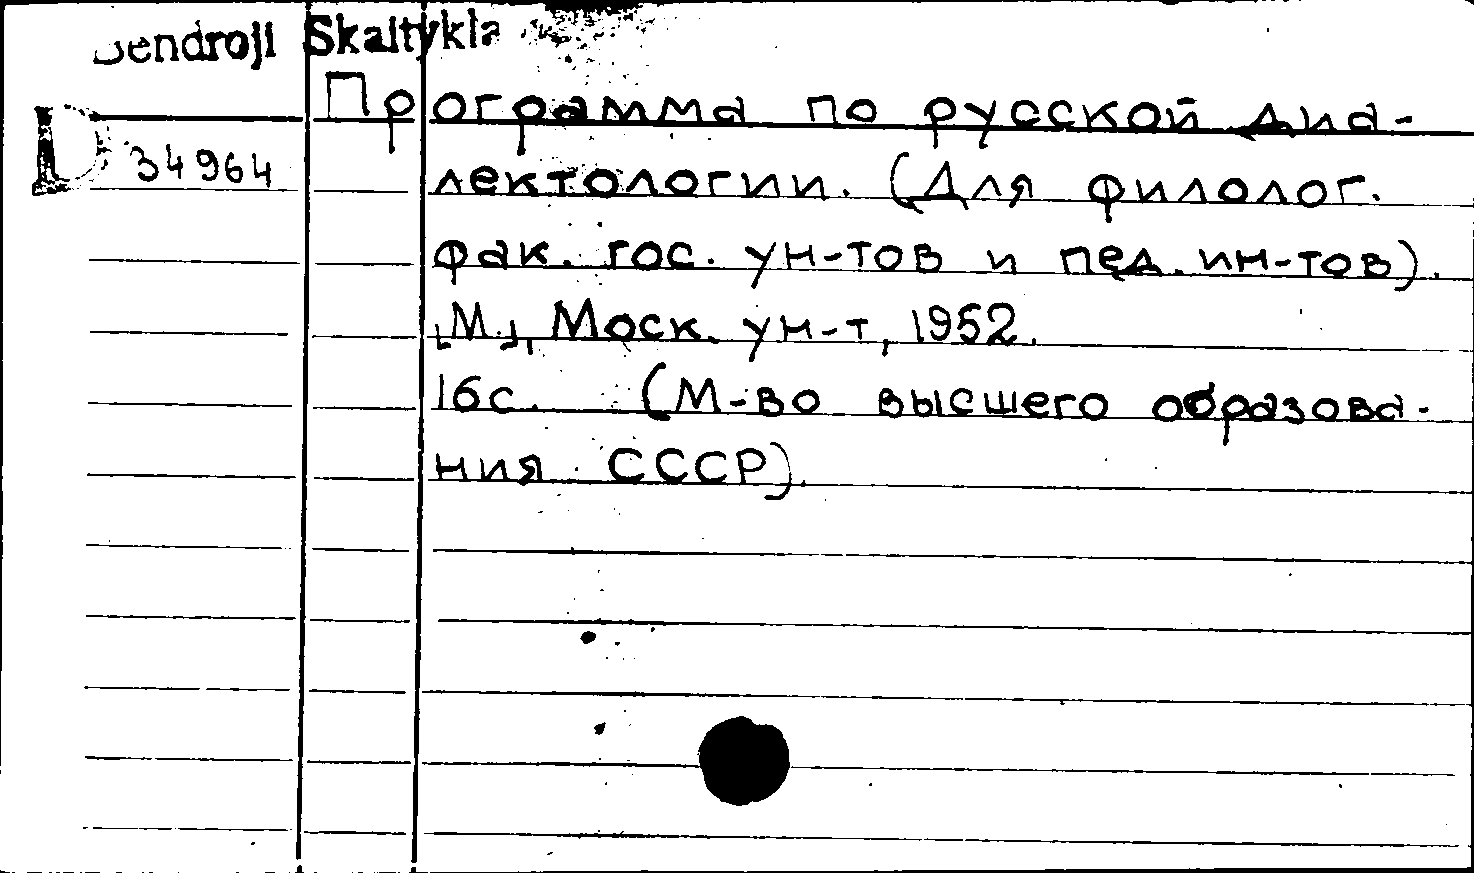 Bendroji Skaitykla
Программа по русской диа-
D 34964
лектологии. (Для филолог.
фак. гос. ун-тов и пед. ин-тов).
[М.], Моск. ун-т, 1952.
16с. (М-во высшего образова-
ния СССР).